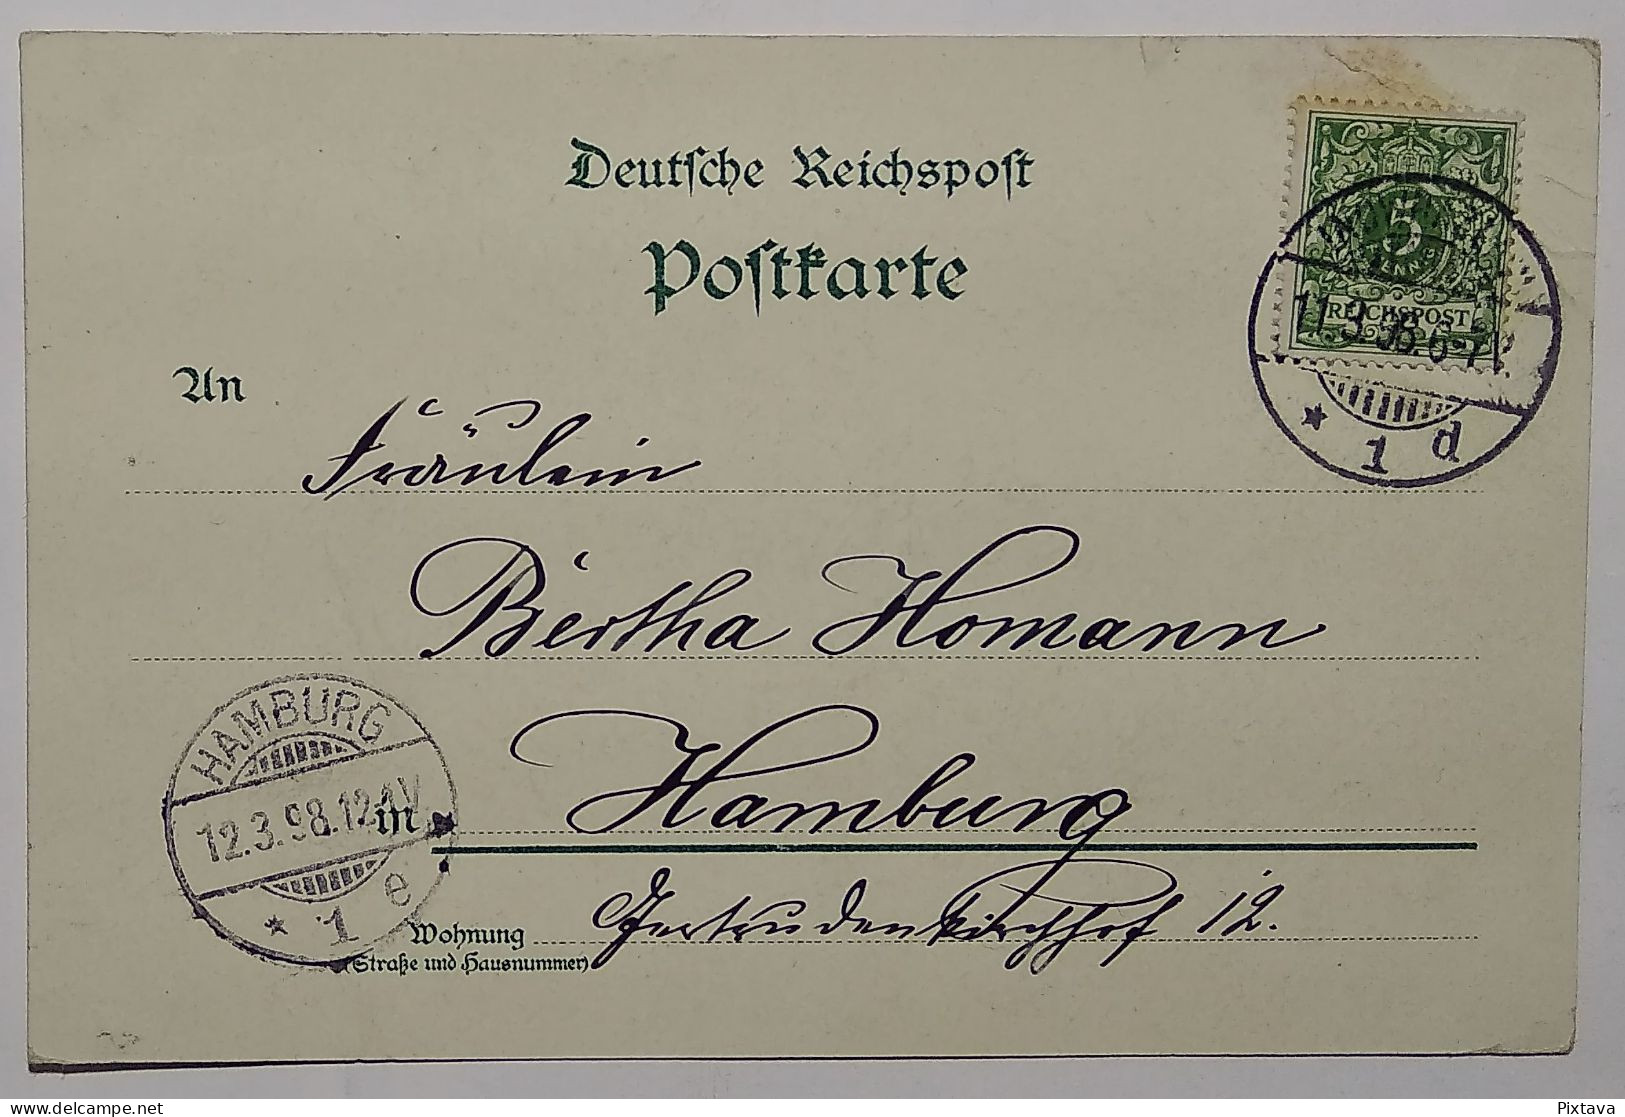 Deutsche Reichspost
Postkarte
5
REICHSPOST
11.3.98.6-7
1 d
An
Fräulein
Bertha Homann
HAMBURG
12.3.98.12-1V
1 e
in
Hamburg
Wohnung
Gertrudenkirchhof 12.
(Straße und Hausnummer)
Pixtava